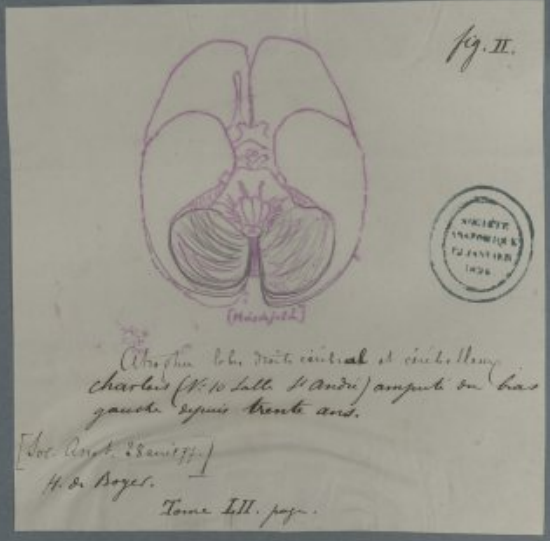 fig. II.
SOCIÉTÉ
ANATOMIQUE
12 JANVIER
1826
[Hirschfeld]
Atrophie lobe droit cérébral et cérébelleux
charlais (N. 10 Salle St André) amputé du bras
gauche depuis trente ans.
[Soc. Anat. 28 avril 77.]
H. de Boyer.
Tome LII. page.